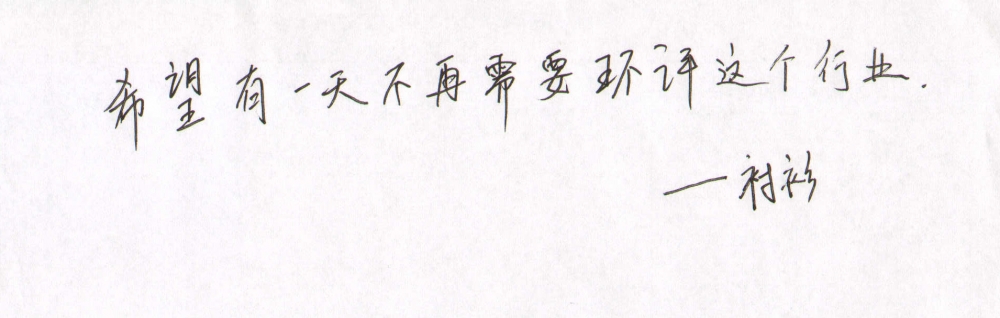 希望有一天不再需要环评这个行业.
—衬衫